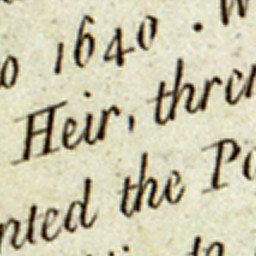 1640 .
Heir, thre
nted the Po